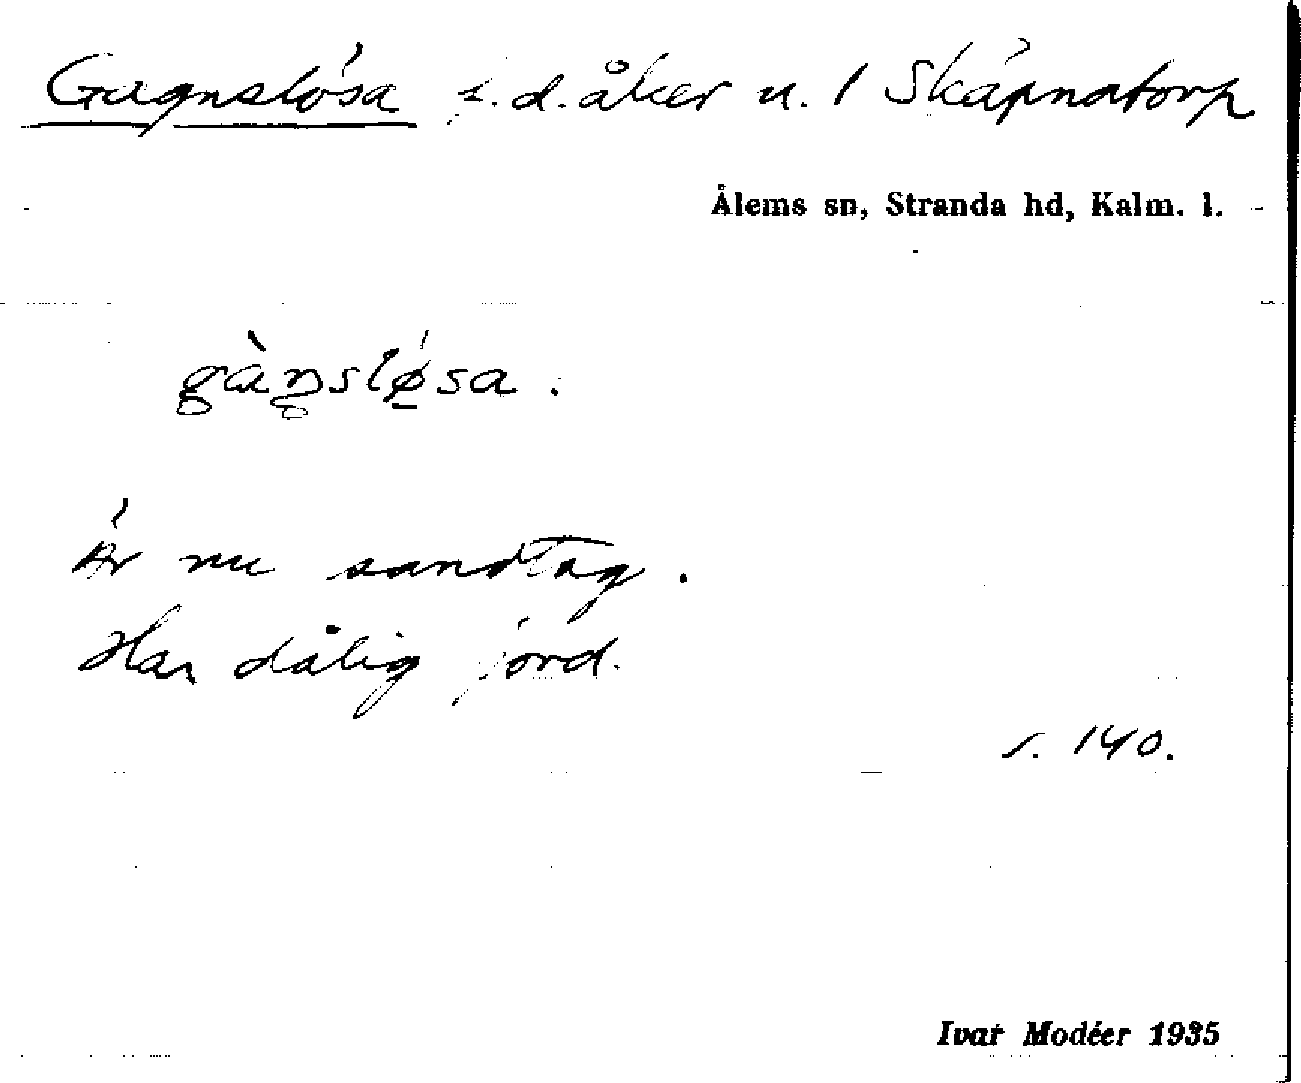 Gagnslösa f.d. åker u. 1 Skäpnatorp
Ålems sn, Stranda hd, Kalm. l.
gàŋslǿsa.
Är nu sandtag.
Har dålig jord.
s. 140.
Ivar Modéer 1935